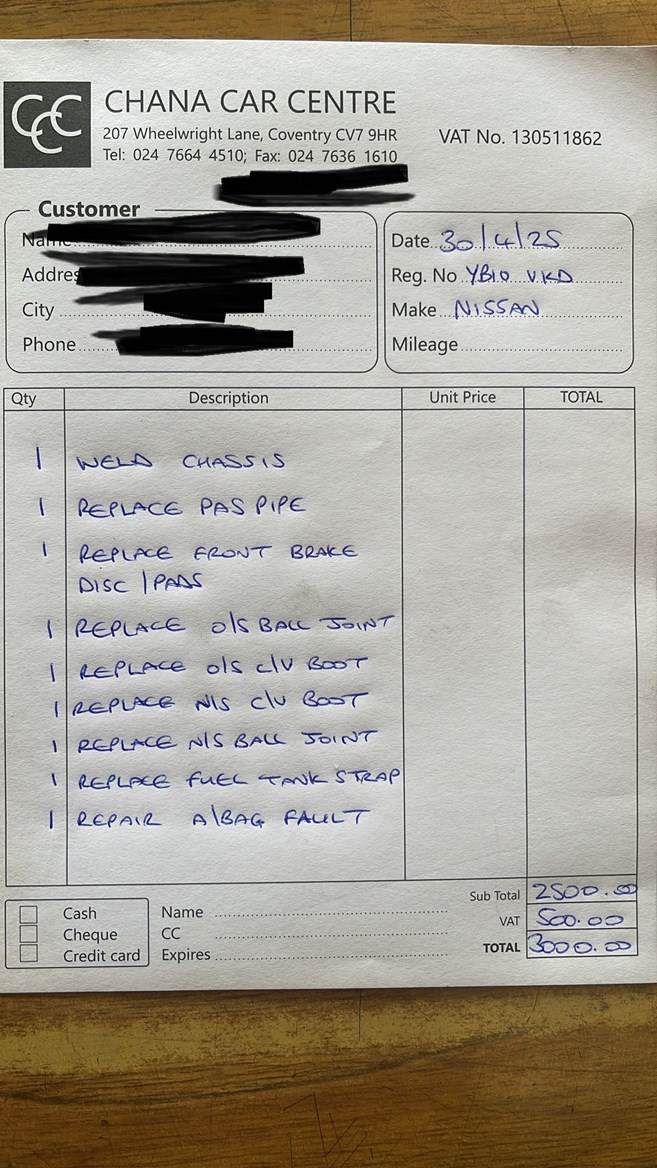 CCC
CHANA CAR CENTRE
207 Wheelwright Lane, Coventry CV7 9HR
Tel: 024 7664 4510; Fax: 024 7636 1610
VAT No. 130511862
Customer
Name
Addres
City
Phone
Date 30/4/25
Reg. No YB10 VKD
Make NISSAN
Mileage
Qty Description Unit Price TOTAL
1 WELD CHASSIS
1 REPLACE PAS PIPE
1 REPLACE FRONT BRAKE
DISC / PADS
1 REPLACE O/S BALL JOINT
1 REPLACE O/S C/V BOOT
1 REPLACE N/S C/V BOOT
1 REPLACE N/S BALL JOINT
1 REPLACE FUEL TANK STRAP
1 REPAIR A\BAG FAULT
Sub Total 2500.00
VAT 500.00
TOTAL 3000.00
Cash
Cheque
Credit card
Name
CC
Expires